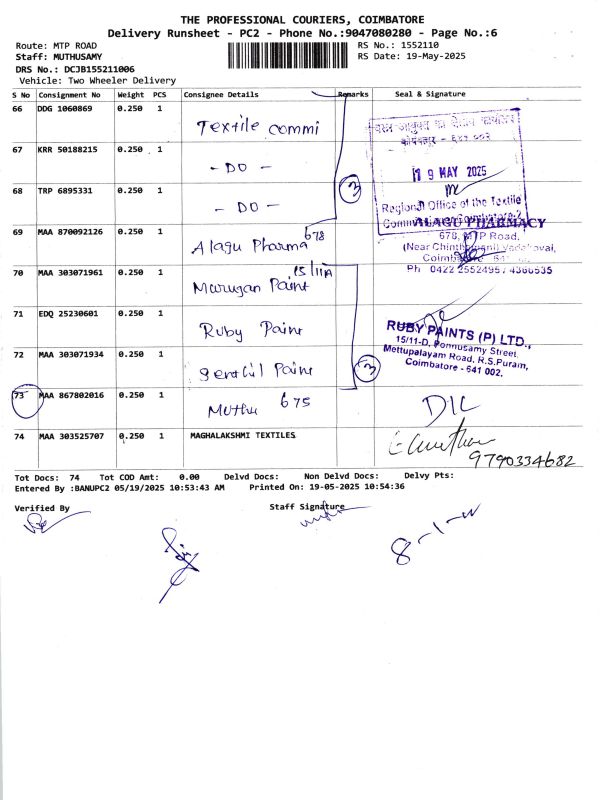 THE PROFESSIONAL COURIERS, COIMBATORE
Delivery Runsheet - PC2 - Phone No.:9047080280 - Page No.:6
Route: MTP ROAD
RS No.: 1552110
Staff: MUTHUSAMY
RS Date: 19-May-2025
DRS No.: DCJB155211006
Vehicle: Two Wheeler Delivery
S No Consignment No Weight PCS Consignee Details Remarks Seal & Signature
66 DDG 1060869 0.250 1 Textile commi
67 KRR 50188215 0.250 1 - DO -
68 TRP 6895331 0.250 1 - DO -
3
वस्त्र आयुक्त का क्षेत्रीय कार्यालय
19 MAY 2025
Regional Office of the Textile
69 MAA 870092126 0.250 1 Alagu Pharma 678
ALAGU PHARMACY
678, MTP Road,
Ph 0422 2552495 / 4366535
70 MAA 303071961 0.250 1 Murugan Paint 15/11A
71 EDQ 25230601 0.250 1 Ruby Paint
RUBY PAINTS (P) LTD.,
15/11-D, Ponnusamy Street,
Mettupalayam Road, R.S.Puram,
Coimbatore - 641 002.
72 MAA 303071934 0.250 1 Paint
3
73 MAA 867802016 0.250 1 Muthu 675
74 MAA 303525707 0.250 1 MAGHALAKSHMI TEXTILES
9790334682
Tot Docs: 74 Tot COD Amt: 0.00 Delvd Docs: Non Delvd Docs: Delvy Pts:
Entered By :BANUPC2 05/19/2025 10:53:43 AM Printed On: 19-05-2025 10:54:36
Verified By
Staff Signature